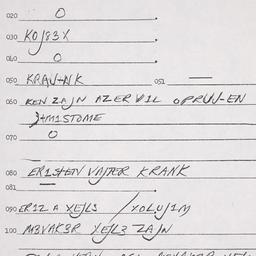 020 O
030 KOJ83X
040 O
050 KRAV+NK 051 —
060 KEN ZAJN AZER WIL OPRUJ-EN
J+M1STOME
070 O
080 ER1S+EN VAJTER KRANK
081 —
090 ER1Z A XEJLS / XOLUJ1M
100 M3VAK3R XEJL3 ZAJN